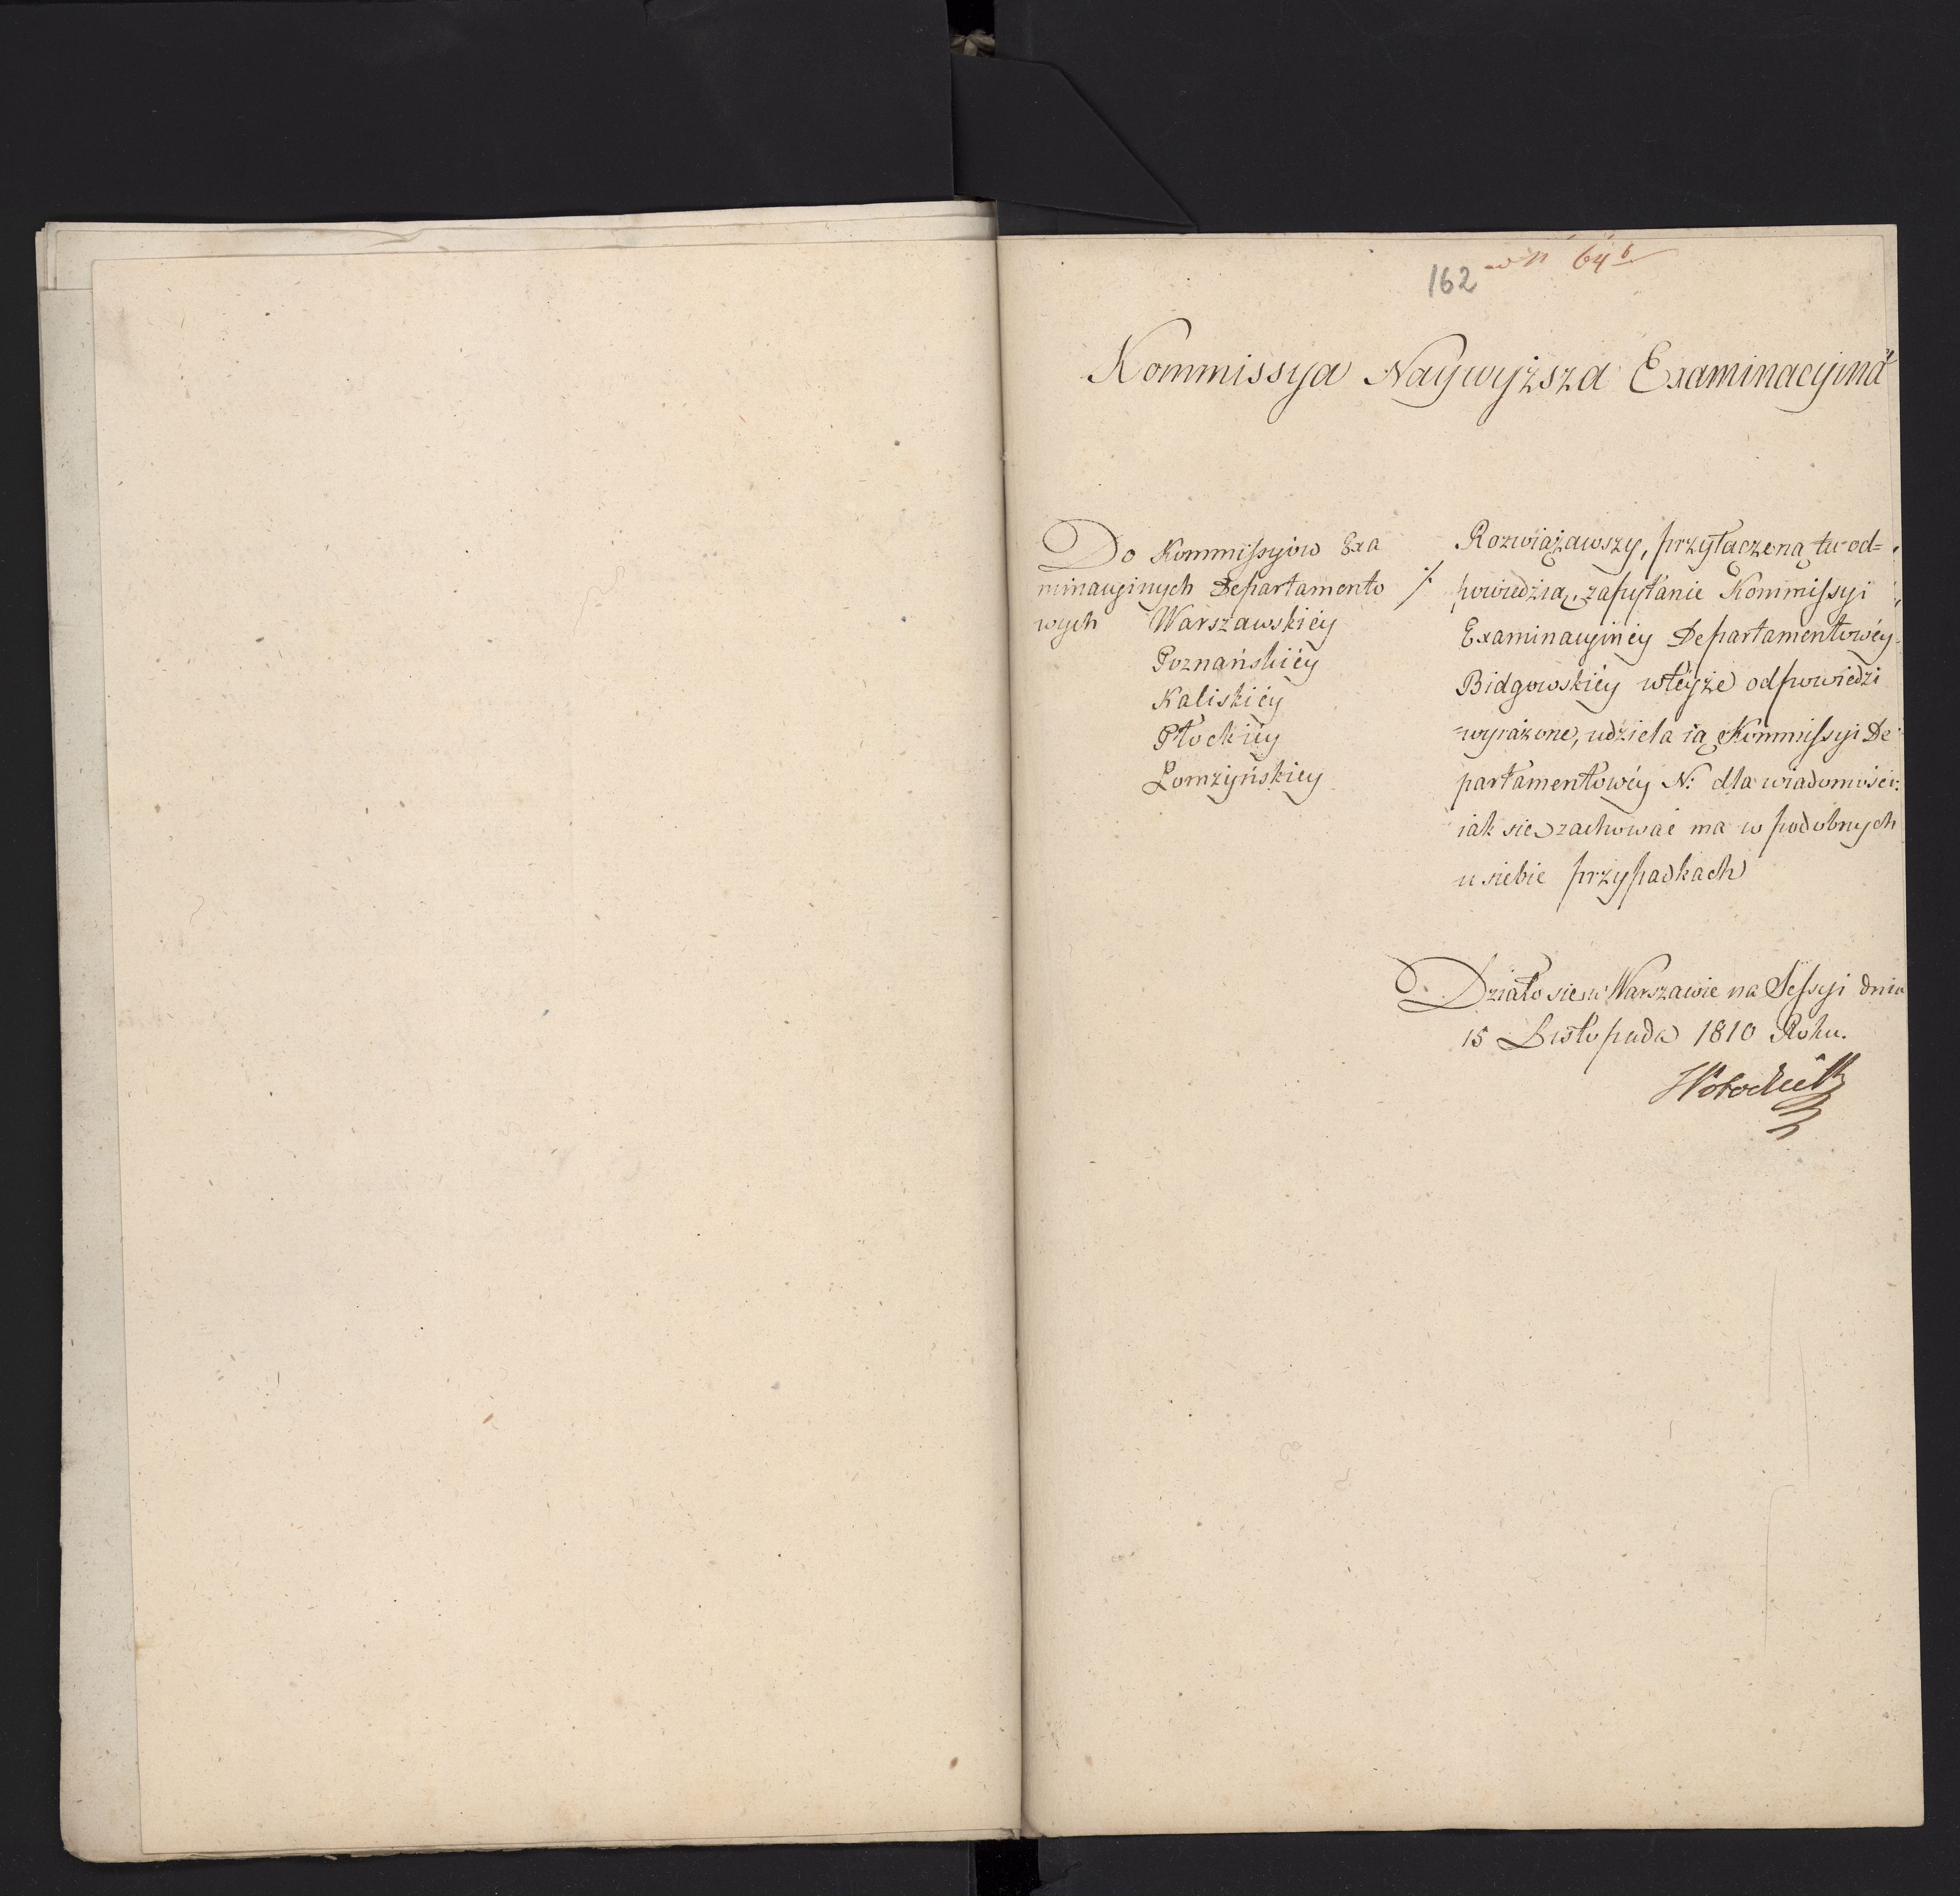 162
64 b
Kommissya Naywyższa Examinacyina
Do Kommissyiow Exa
minacyinych Departamento
wych Warszawskiey
Poznańskiéy
Kaliskiéy
Płockiéy
Łomżyńskiey
Rozwiązawszy, przyłączoną tu od=
powiedzią, zapytanie Kommissyi
Examinacyinéy Departamentowéy
Bidgowskiéy wtéyże odpowiedzi
wyrażone, udziela ią Kommissyi De
partamentowéy N: dla wiadomości:
iak się zachować ma w podobnych
u siebie przypadkach
Działo się w Warszawie na Sessyi dnia
15 Listopada 1810 Roku.